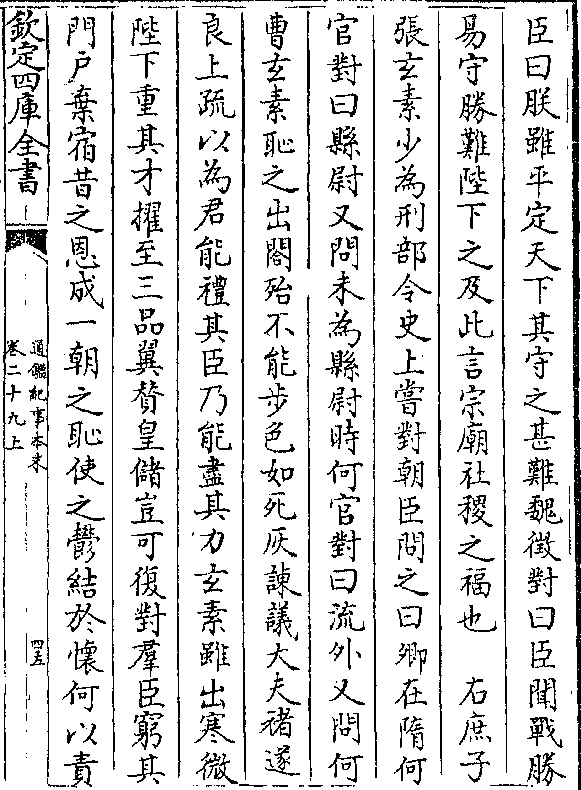 臣曰朕雖平定天下其守之甚難魏徵對曰臣聞戰勝
易守勝難陛下之及此言宗廟社稷之福也　右庶子
張玄素少為刑部令史上嘗對朝臣問之曰卿在隋何
官對曰縣尉又問未為縣尉時何官對曰流外又問何
曹玄素恥之出閤殆不能步色如死灰諫議大夫褚遂
良上疏以為君能禮其臣乃能盡其力玄素雖出寒微
陛下重其才擢至三品翼贊皇儲豈可復對羣臣窮其
門戶棄宿昔之恩成一朝之恥使之鬱結於懷何以責
欽定四庫全書
通鑑紀事本末
卷二十九上
四五